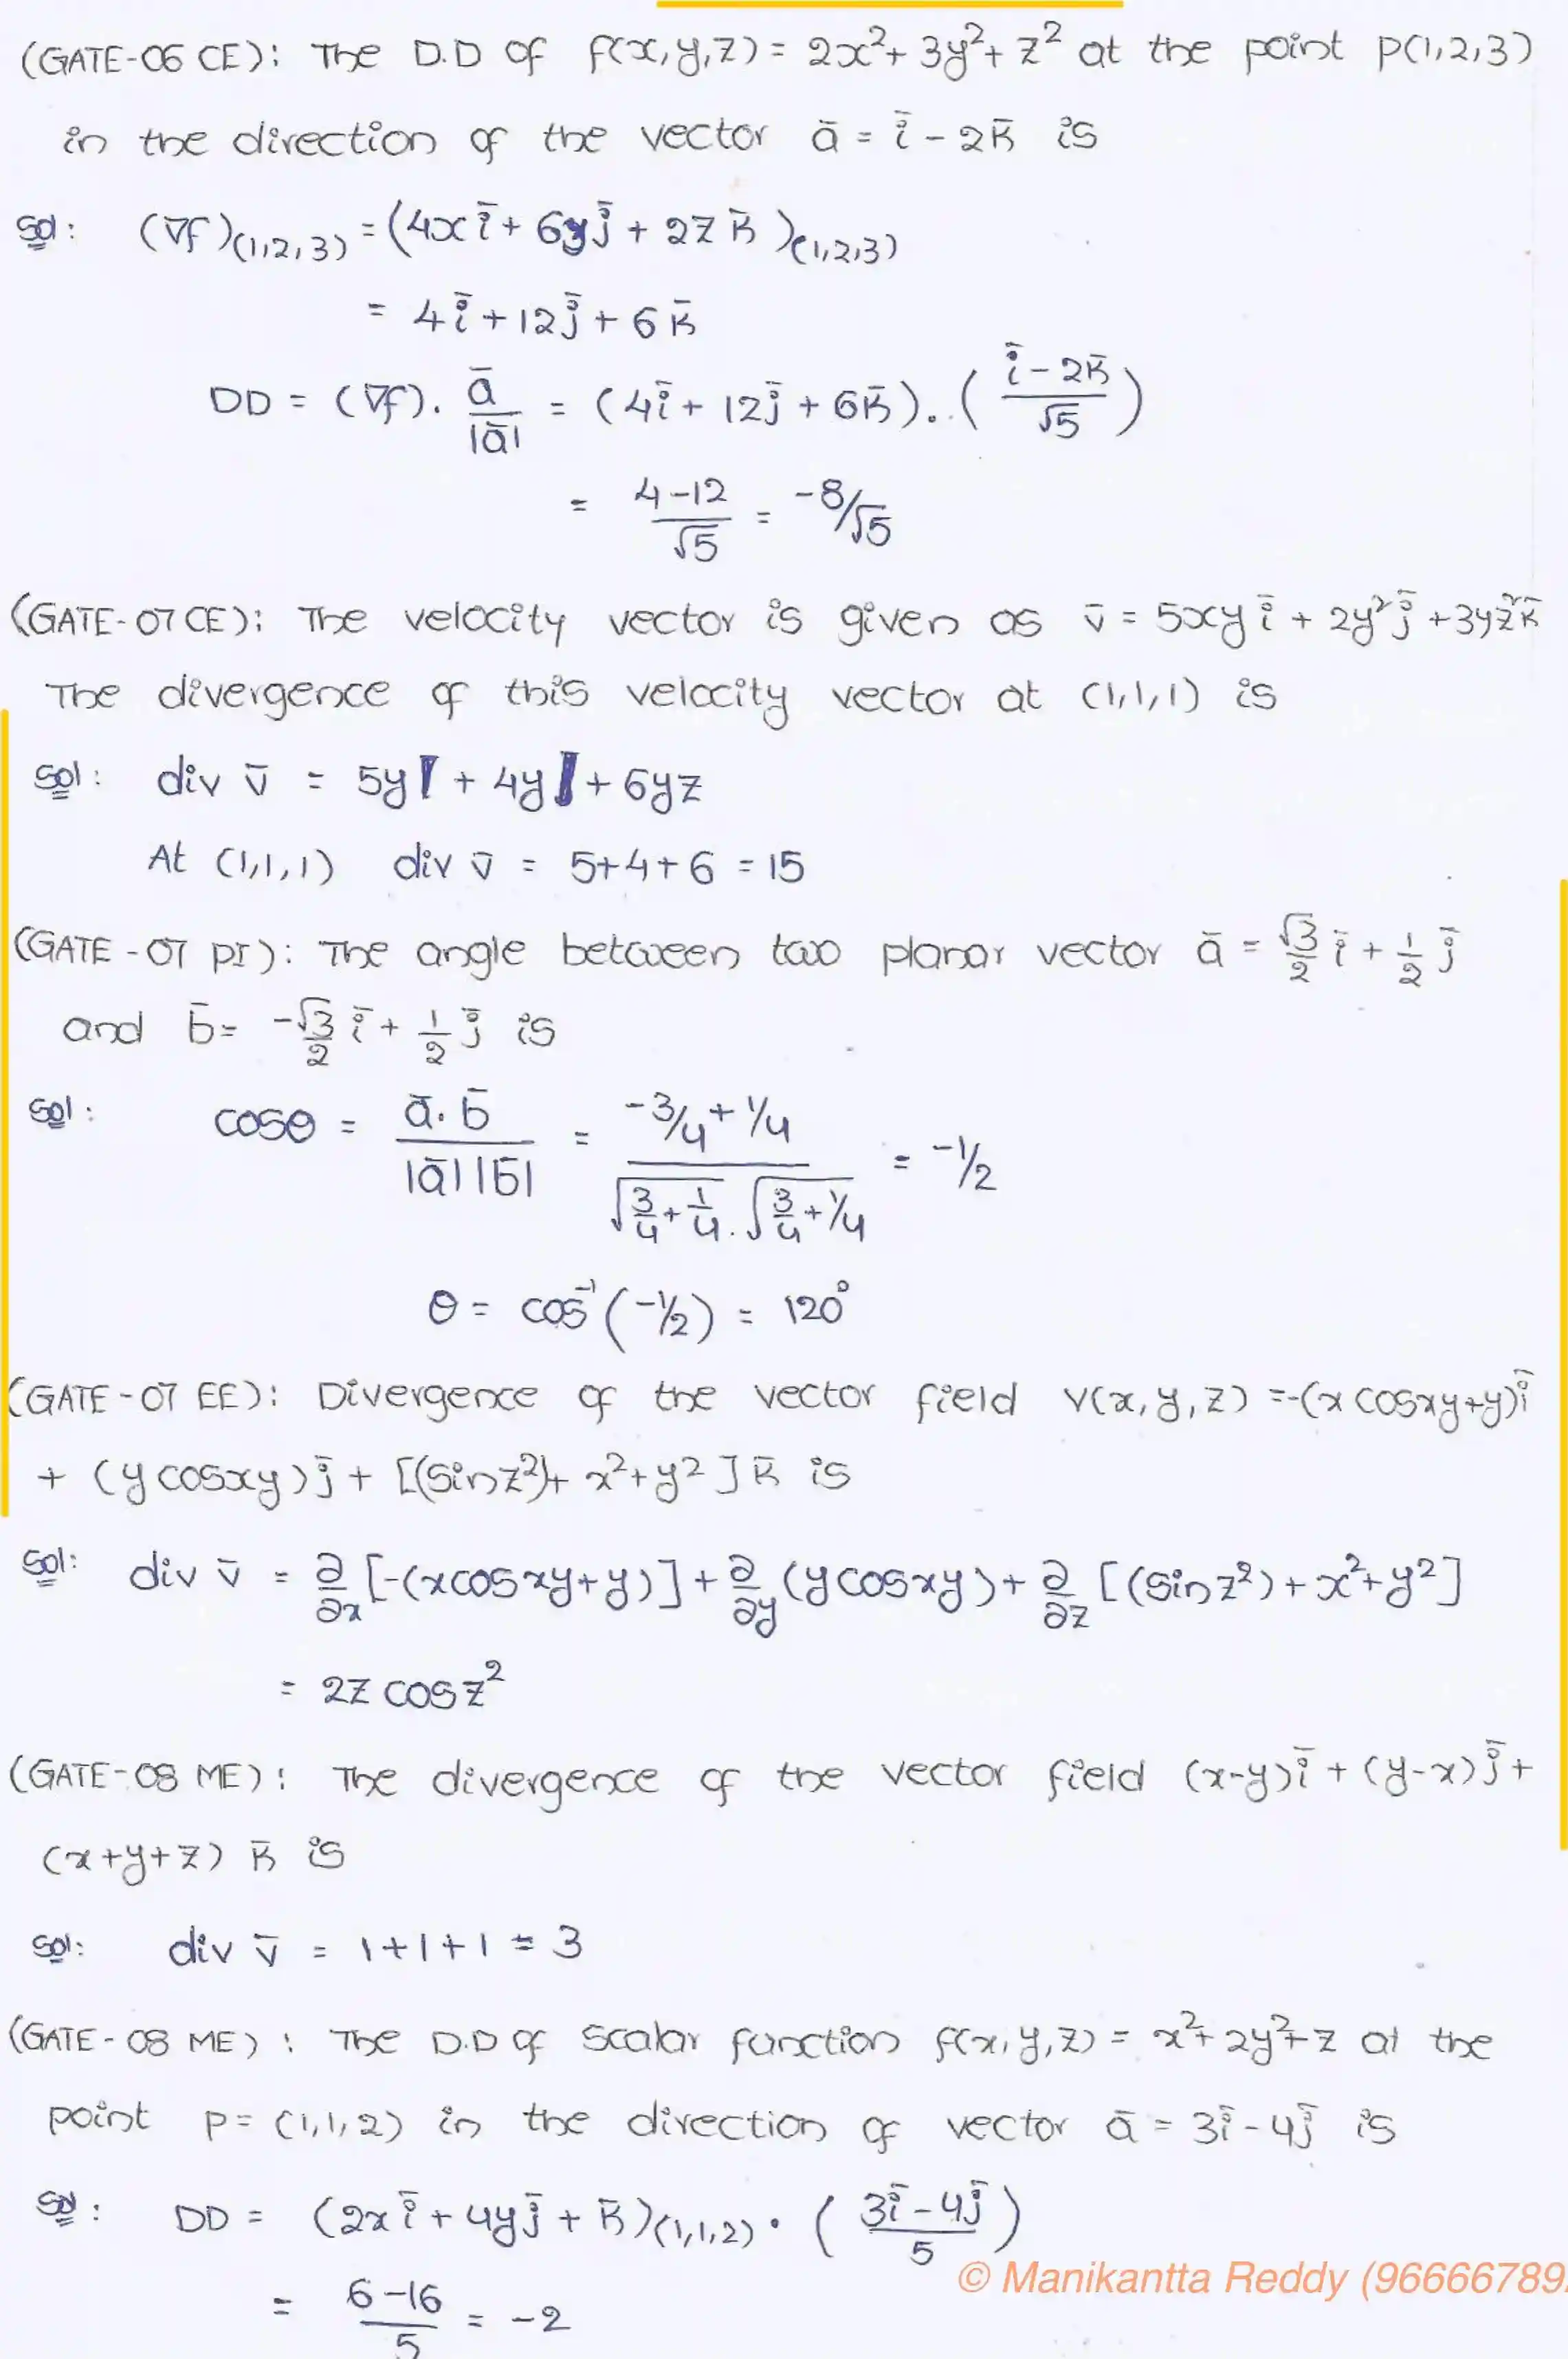 (GATE-06 CE): The D.D of f(x,y,z) = 2x²+ 3y²+ z² at the point P(1,2,3)
in the direction of the vector ā = ī - 2k̄ is
Sol: (∇f)(1,2,3) = (4x ī + 6y j̄ + 2z k̄)(1,2,3)
= 4ī + 12j̄ + 6k̄
DD = (∇f). ā/|ā| = (4ī + 12j̄ + 6k̄). (ī - 2k̄/√5)
= 4-12/√5 = -8/√5
(GATE-07 CE): The velocity vector is given as v̄ = 5xy ī + 2y² j̄ + 3yz² k̄
The divergence of this velocity vector at (1,1,1) is
Sol: div v̄ = 5y + 4y + 6yz
At (1,1,1) div v̄ = 5+4+6 = 15
(GATE-07 PI): The angle between two planar vector ā = √3/2 ī + 1/2 j̄
and b̄ = -√3/2 ī + 1/2 j̄ is
Sol: cosθ = ā.b̄/|ā||b̄| = -3/4 + 1/4 / √(3/4 + 1/4) . √(3/4 + 1/4) = -1/2
θ = cos⁻¹(-1/2) = 120°
(GATE-07 EE): Divergence of the vector field V(x,y,z) = -(x cosxy+y)ī
+ (y cosxy)j̄ + [(sinz²)+ x²+y²]k̄ is
Sol: div v̄ = ∂/∂x [-(xcosxy+y)] + ∂/∂y (ycosxy) + ∂/∂z [(sinz²)+x²+y²]
= 2z cosz²
(GATE-08 ME): The divergence of the vector field (x-y)ī + (y-x)j̄ +
(x+y+z) k̄ is
Sol: div v̄ = 1+1+1 = 3
(GATE-08 ME): The D.D of scalar function f(x,y,z) = x²+2y²+z at the
point P = (1,1,2) in the direction of vector ā = 3ī - 4j̄ is
Sol: DD = (2x ī + 4y j̄ + k̄)(1,1,2) . (3ī - 4j̄/5)
© Manikantta Reddy (96666789
= 6-16/5 = -2